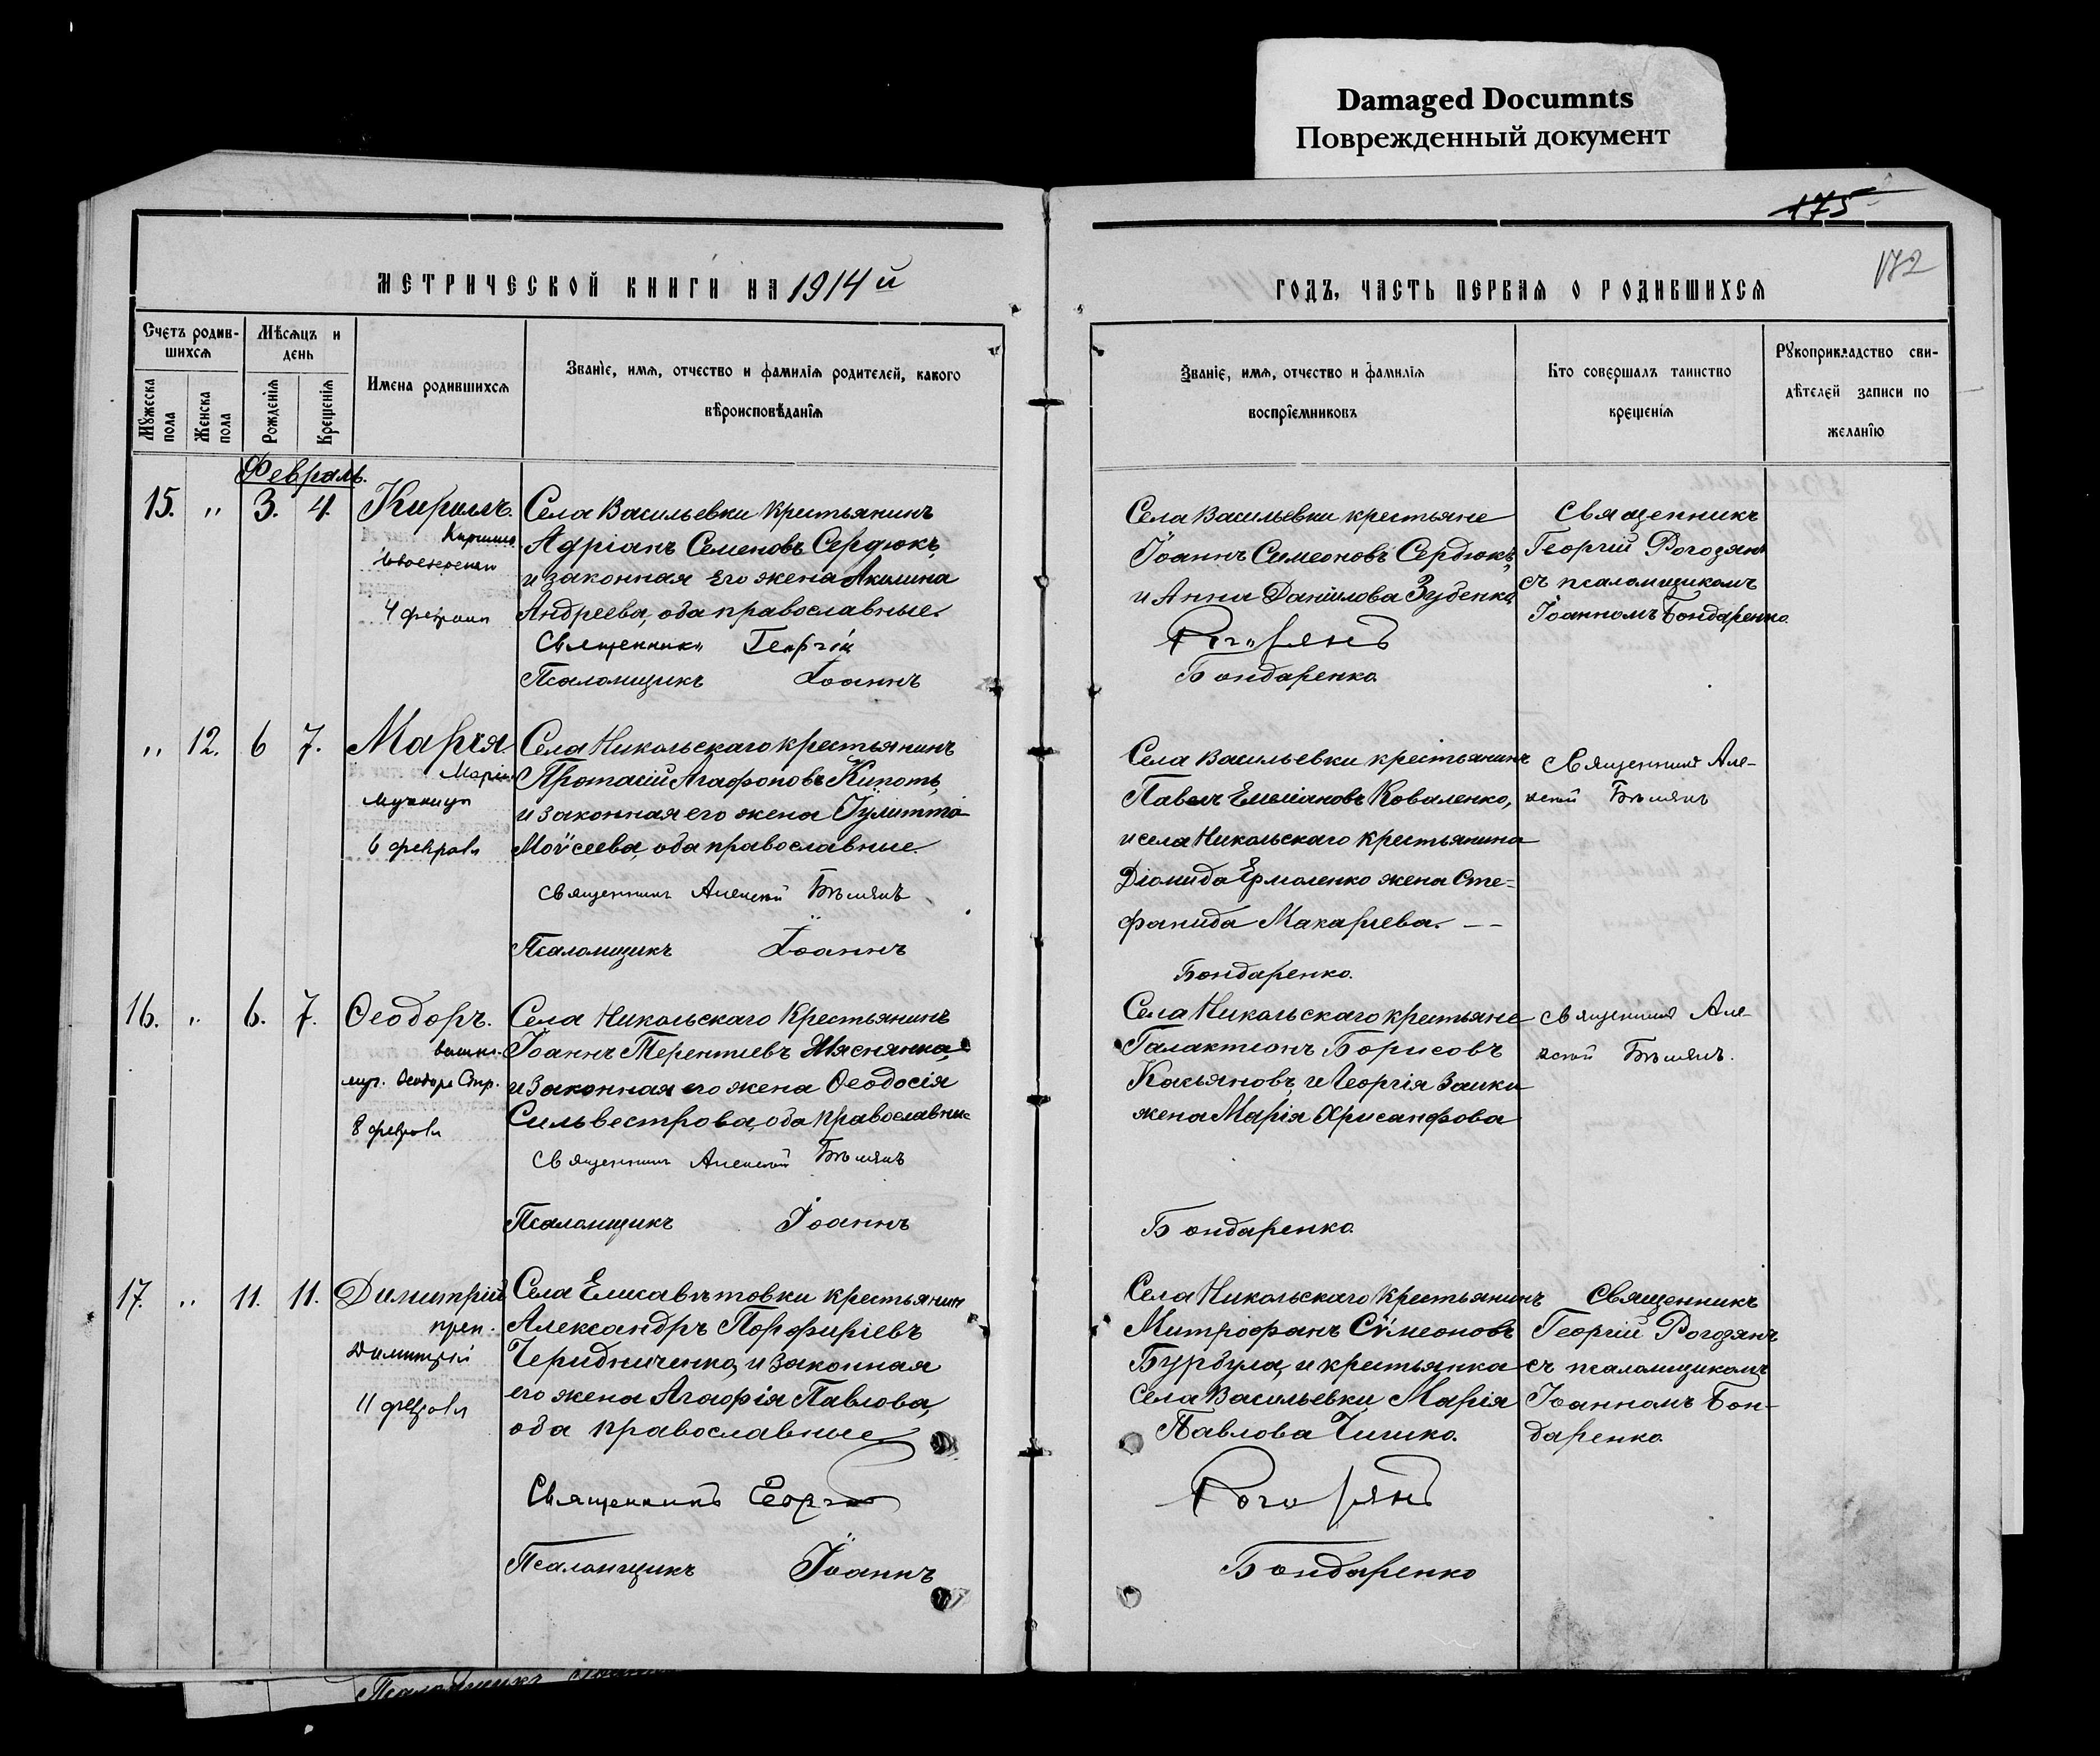 Damaged Documnts
Поврежденный документ
175
172
МЕТРИЧЕСКОЙ КНИГИ НА 1914 й
ГОДЪ, ЧАСТЬ ПЕРВАЯ О РОДИВШИХСЯ
Счетъ родив-
шихся
Мѣсяцъ и
день
Мужеска пола
Женска пола
Рожденія
Крещенія
Имена родившихся
Званіе, имя, отчество и фамилія родителей, какого
вѣроисповѣданія
Званіе, имя, отчество и фамилія
воспріемниковъ
Кто совершалъ таинство
крещенія
Рукоприкладство сви-
дѣтелей записи по
желанію
Февраль.
15. " 3. 4. Кириллъ.
Кирилла
4 февраля
Села Васильевки крестьянинъ
Адріанъ Семеновъ Сердюкъ,
и законная его жена Акилина
Андреева, оба православные.
Священникъ Георгій
Псаломщикъ Іоаннъ
Села Васильевки крестьяне
Іоаннъ Симеоновъ Сердюкъ,
и Анна Данiилова Зубенко
Рогозянъ
Бондаренко.
Священникъ
Георгій Рогозянъ
съ псаломщикомъ
Іоанномъ Бондаренко.
" 12. 6 7. Марія.
Маріи
мученицы
6 февраля
Села Никольскаго крестьянинъ
Протасій Агафоновъ Кипоть,
и законная его жена Іулитта
Моѵсеева, оба православные.
Священникъ Алексій
Псаломщикъ Іоаннъ
Села Васильевки крестьянинъ
Павелъ Емеліановъ Коваленко,
и села Никольскаго крестьянина
Діомида Ермоленко жена Сте-
фанида Макарiева. — —
Бондаренко.
Священникъ Але-
ксій
16. " 6. 7. Ѳеодоръ.
велик.
муч. Ѳеодора Стр.
8 февраля
Села Никольскаго Крестьянинъ
Іоаннъ Терентiевъ Мяснянка,
и законная его жена Ѳеодосія
Сильвестрова, оба православные
Священникъ Алексій
Псаломщикъ Іоаннъ
Села Никольскаго крестьяне
Галактіонъ Борисовъ
Касьяновъ, и Георгія Заики
жена Марія Хрисанфова
Бондаренко.
Священникъ Але-
ксій
17. " 11. 11. Димитрій
преп.
Димитрій
11 февраля
Села Елисаветовки крестьянин
Александръ Порфиріевъ
Чередниченко, и законная
его жена Агафія Павлова,
оба православные
Священникъ Георгій
Псаломщикъ Іоаннъ
Села Никольскаго Крестьянинъ
Митрофанъ Сѵмеоновъ
Бурбула, и крестьянка
села Васильевки Марія
Павлова Чишко.
Рогозянъ
Бондаренко
Священникъ
Георгій Рогозянъ
съ псаломщикомъ
Іоанномъ Бон-
даренко.
Псаломщикъ